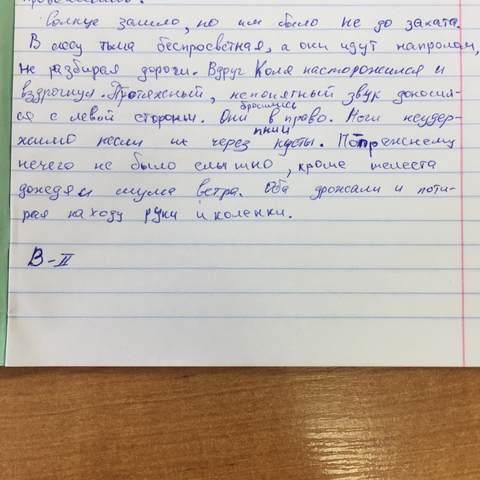 Солнце зашло, но им было не до заката.
В лесу тьма беспросветная, а они идут напролом,
не разбирая дороги. Вдруг Коля насторожился и
вздрогнул. Протяжный, непонятный звук доносил-
ся с левой стороны. Они бросились в право. Ноги неудер-
жимо несли их через пни кусты. Попрежнему
нечего не было слышно, кроме шелеста
дождя и шума ветра. Оба дрожали и поти-
рая на ходу руки и коленки.
В-II